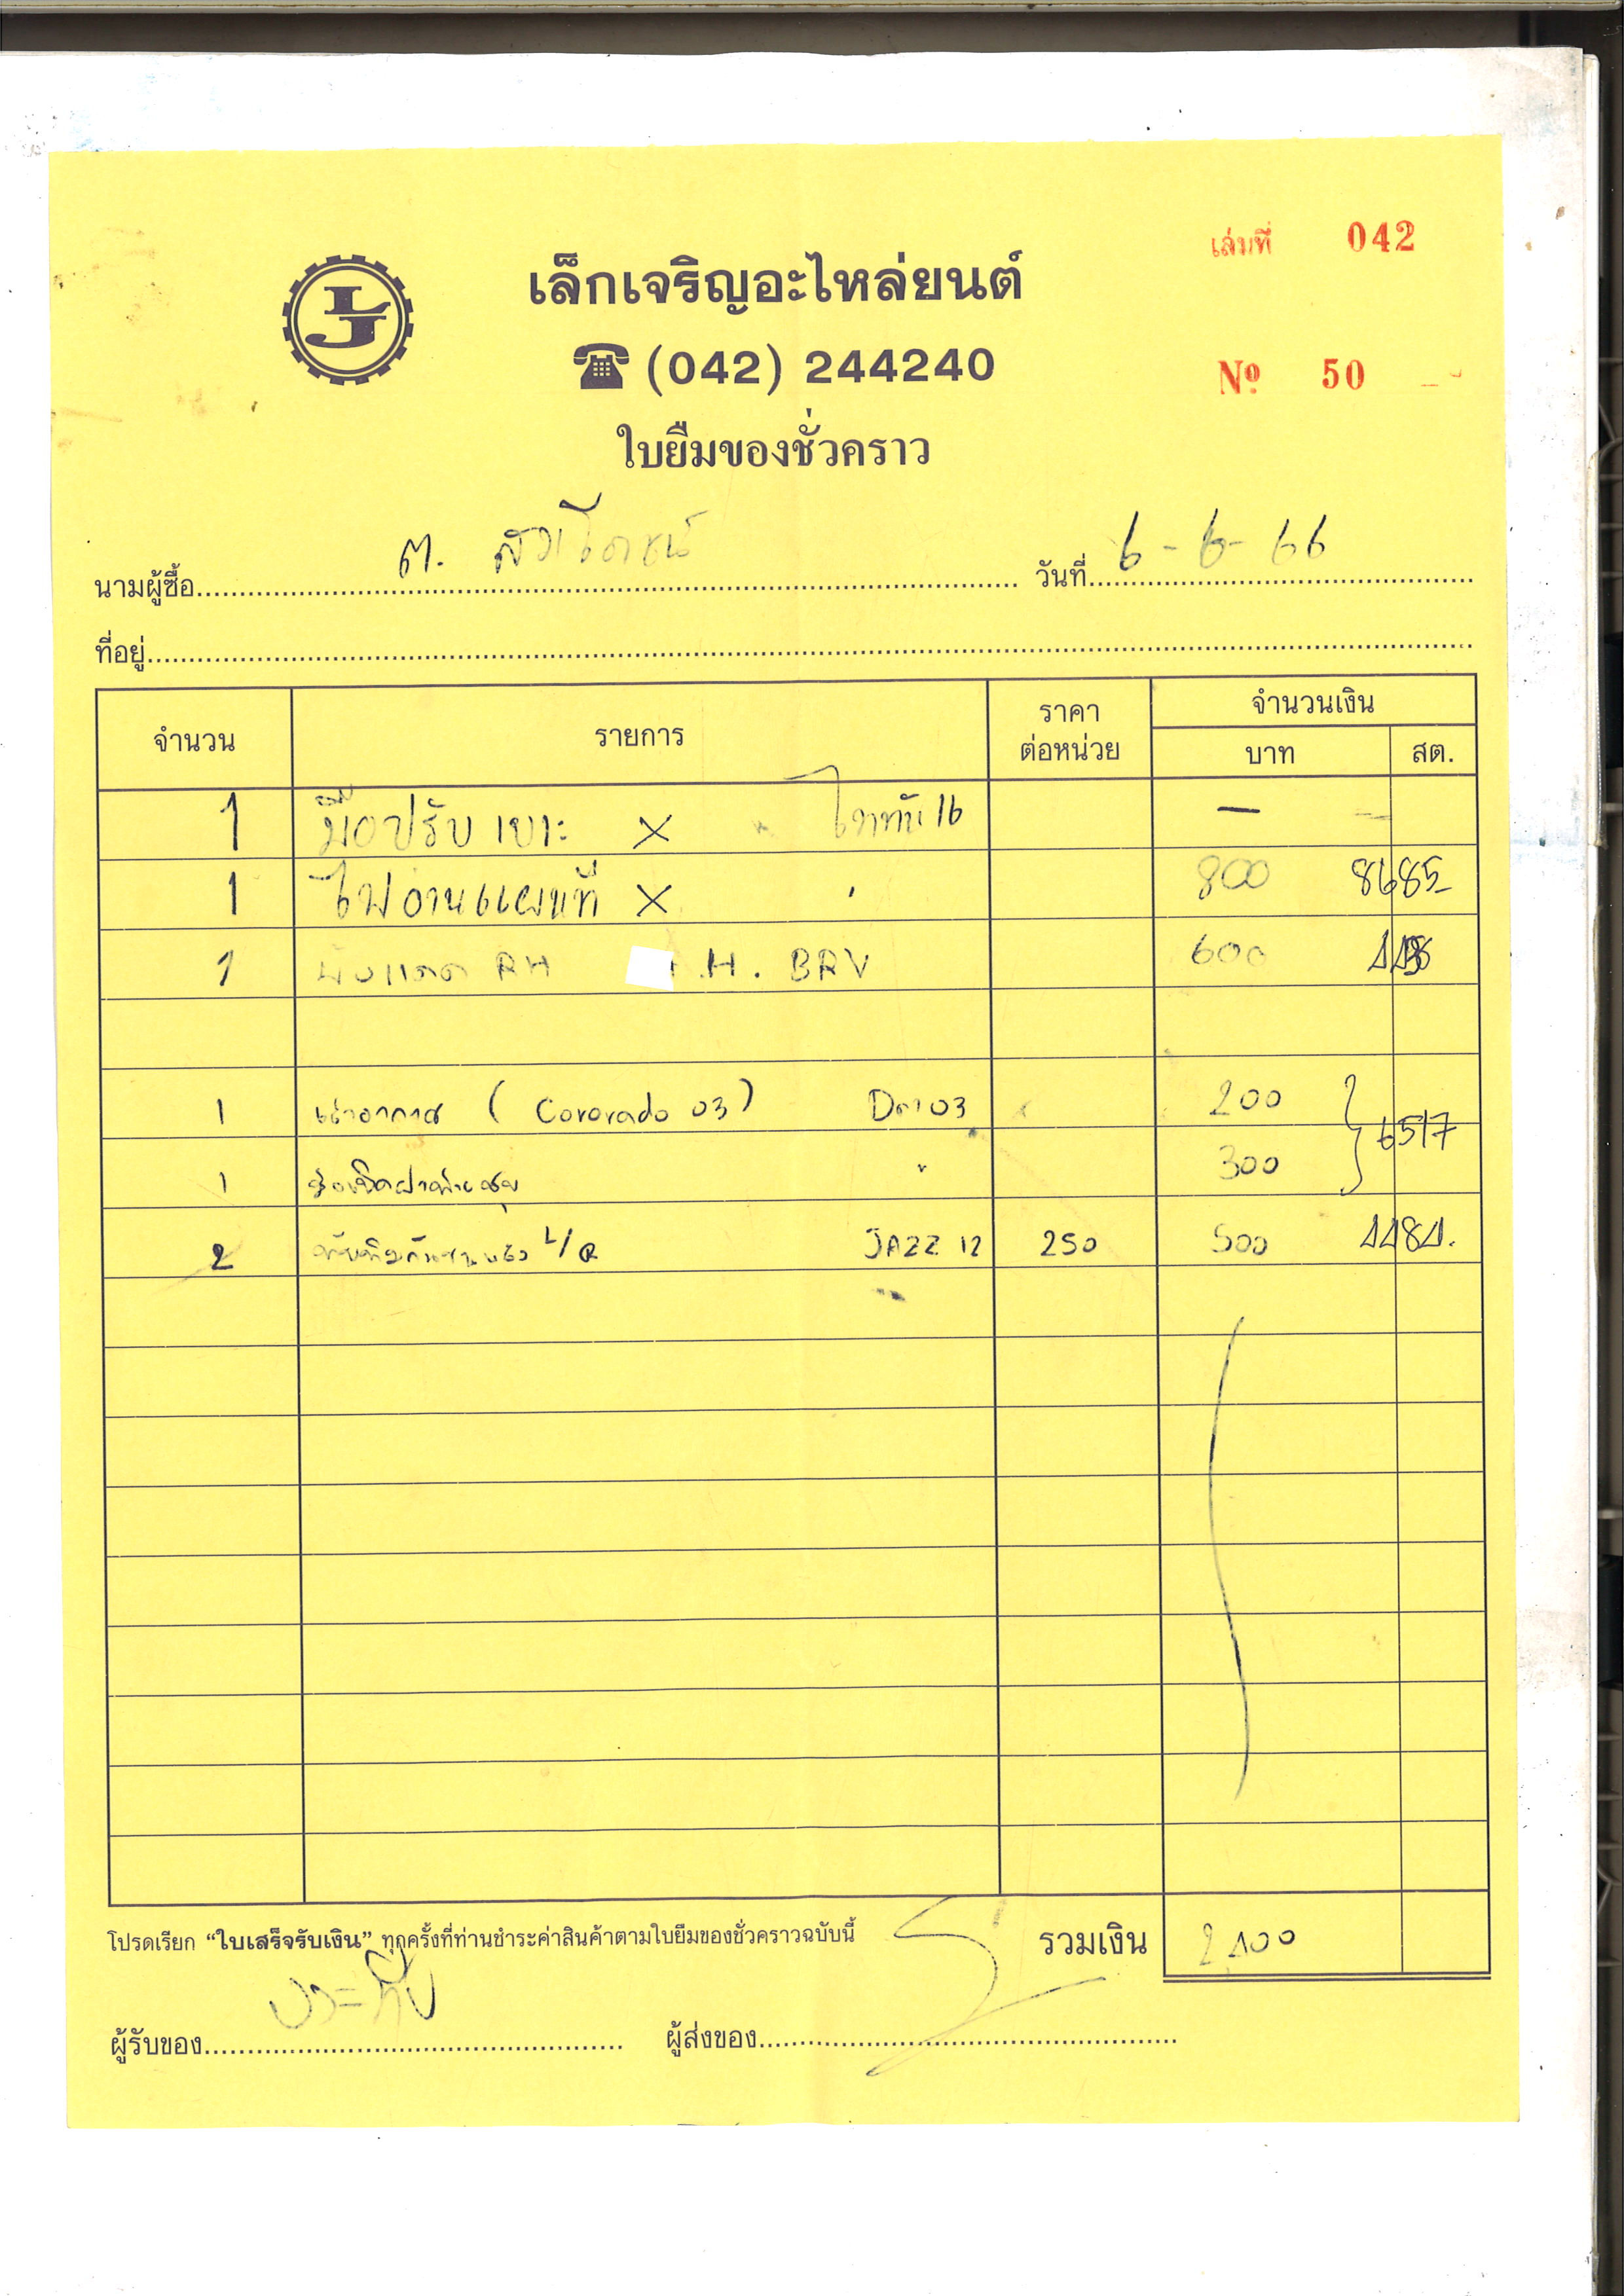 เล่มที่ 042
LJ
เล็กเจริญอะไหล่ยนต์
(042) 244240
Nº 50
ใบยืมของชั่วคราว
นามผู้ซื้อ ต. วันที่ 6-6-66
ที่อยู่
จำนวน รายการ ราคาต่อหน่วย จำนวนเงิน บาท สต.
1 มือปรับเบาะ X ไททัน 16 —
1 ไฟอ่านแผนที่ X 800 8685
1 บังแดด RH .H. BRV 600
1 (Cororado 03) 03 200
1 " 300 6517
2 L/R JAZZ 12 250 500
โปรดเรียก “ใบเสร็จรับเงิน” ทุกครั้งที่ท่านชำระค่าสินค้าตามใบยืมของชั่วคราวฉบับนี้ รวมเงิน 2,400
ผู้รับของ ผู้ส่งของ